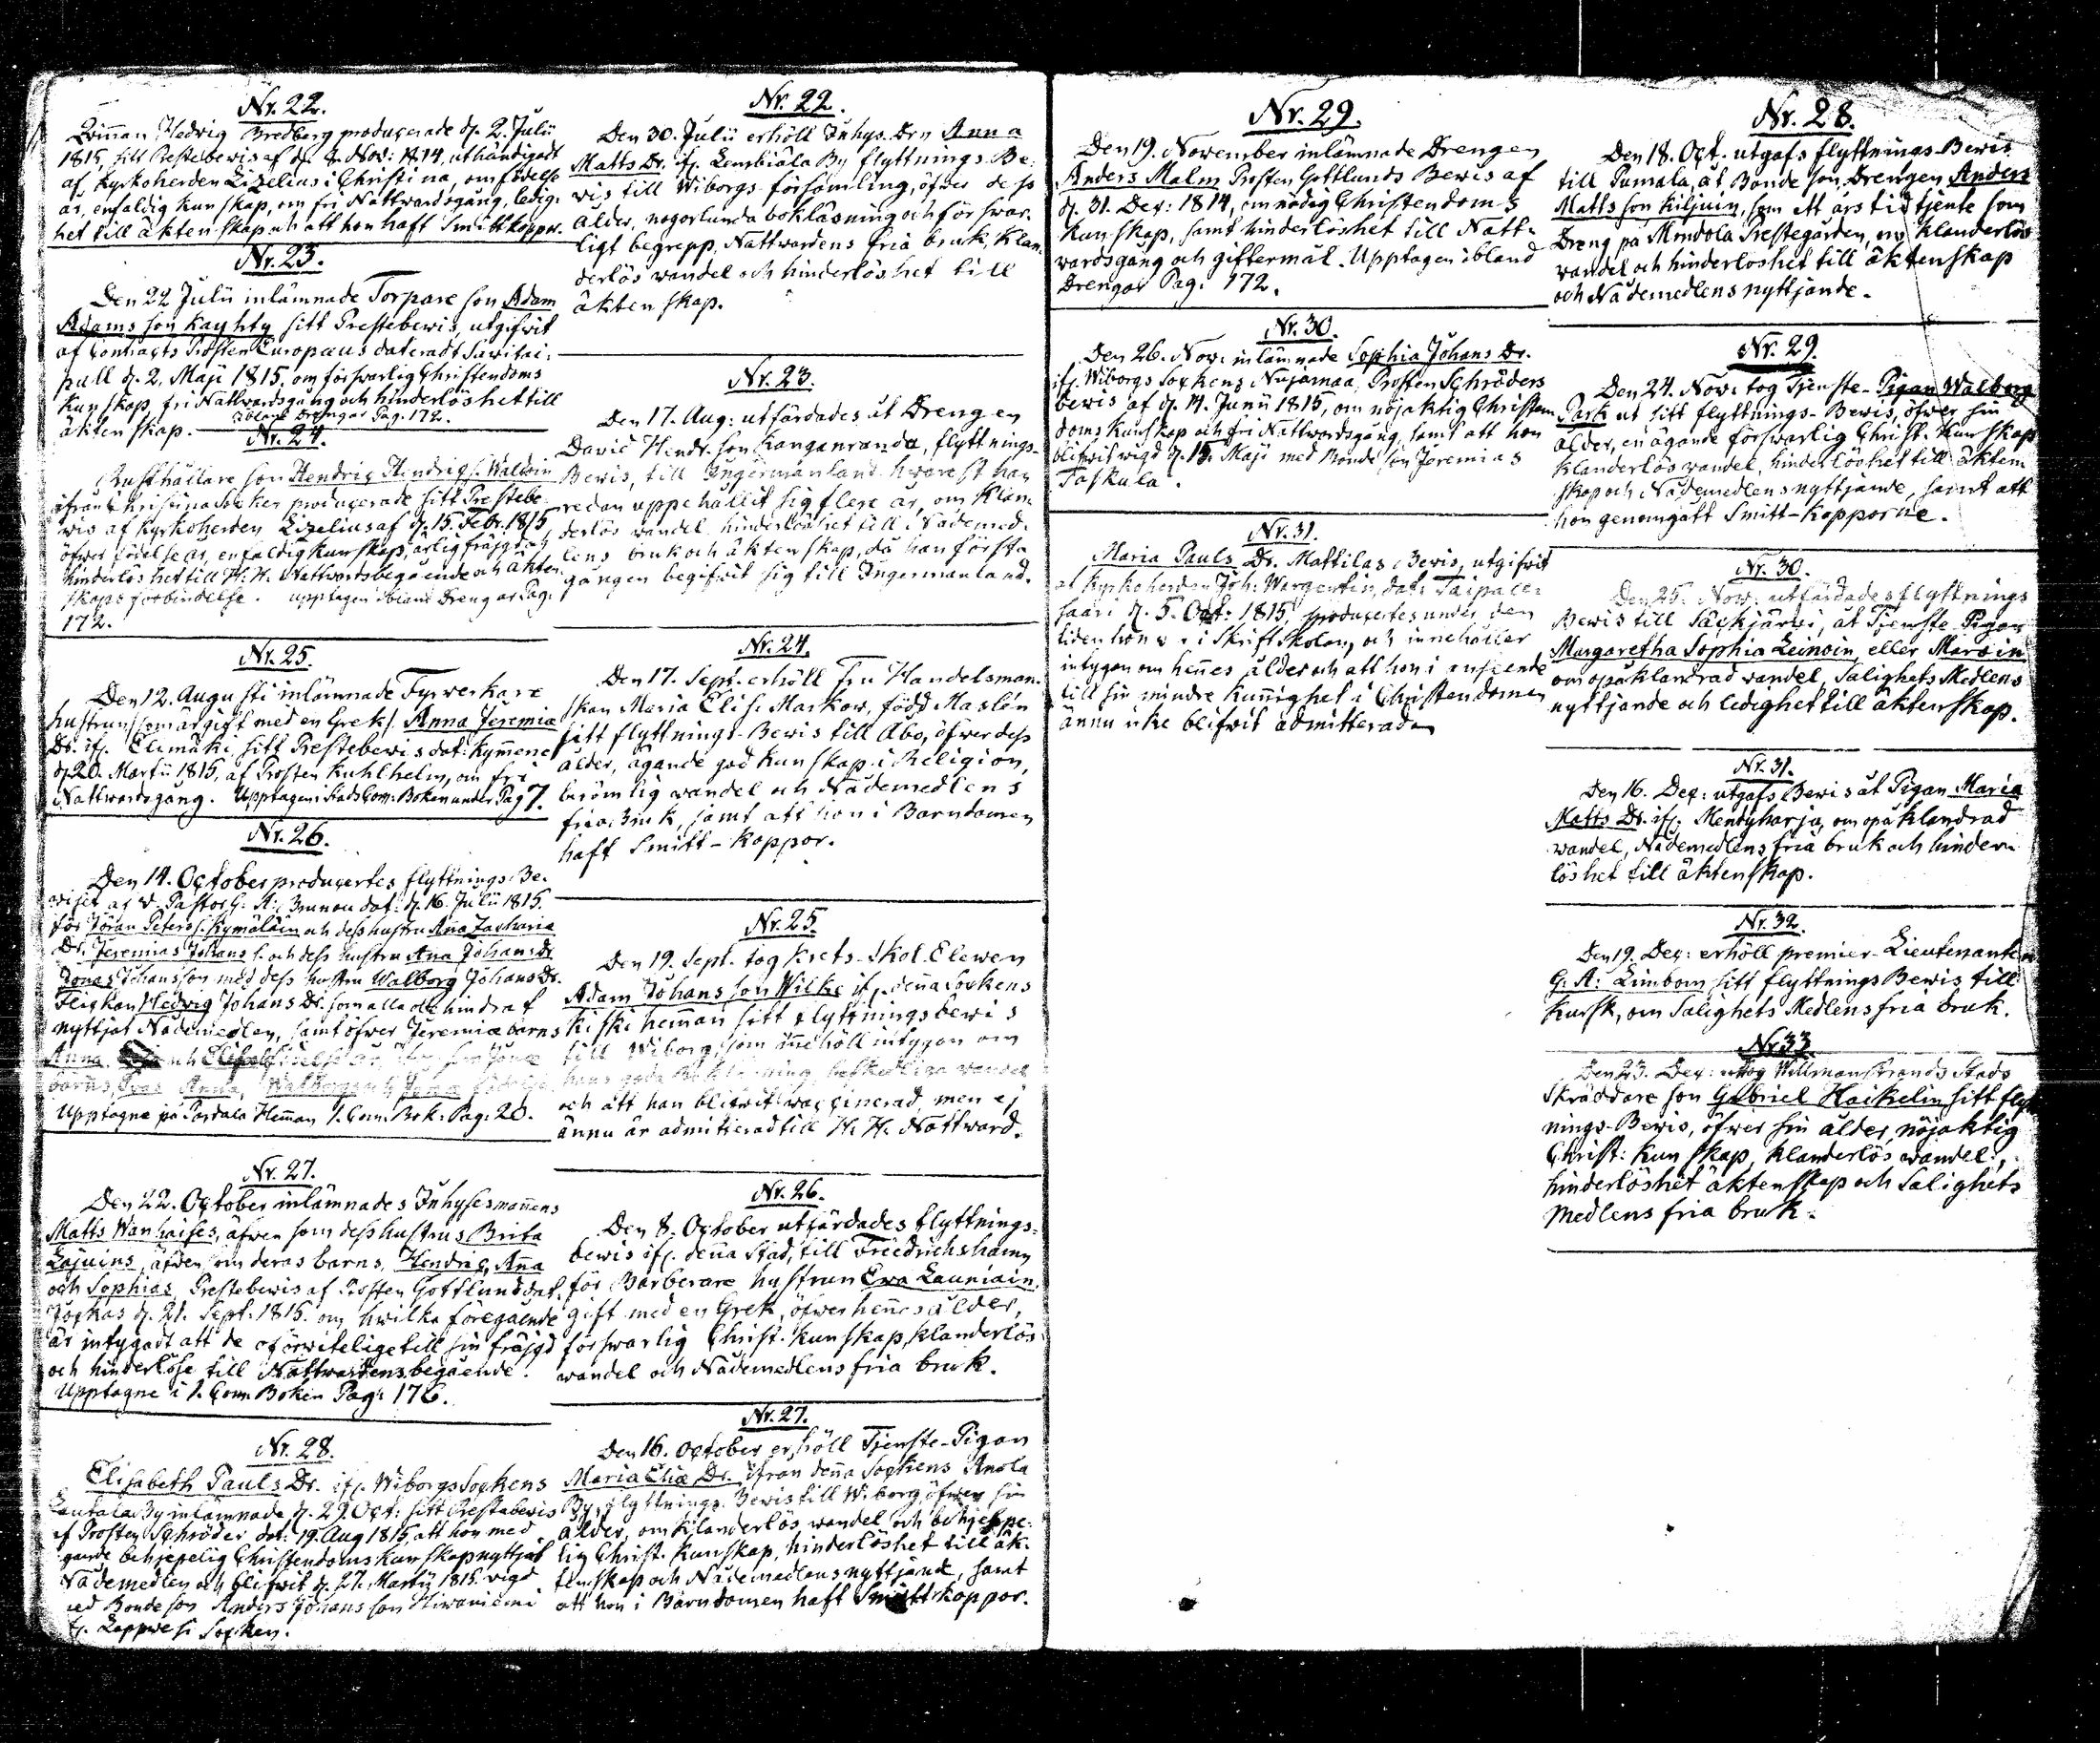 Nr. 22.
Qvinnan Hedvig Bredberg producerade d. 2. Julii
1815, sitt Prestebewis af d. Nov: 1814, uthändigadt
af Kyrkoherden Lizelius i Christina, om födelse
år, enfaldig kunskap, om fri Nattwardsgång, ledig-
het till äktenskap och att hon haft Smittkoppor.
Nr. 23.
Den 22 Julii inlämnade Torpare son Adam
Adams son Kayhty sitt Prestebewis, utgifwit
af Contracts Prosten Europæus dateradt Sawitai-
pall d. 2. Maji 1815, om förswarlig Christendoms
kunskap, fri Nattwardsgång och hinderlöshet till
äktenskap. Ibland Drengar Pag. 172.
Nr. 24.
Rusthållare son Hendric Hendrics. Waldoin
ifrån Christina Socken producerade sitt Prestebe-
wis af Kyrkoherden Lizelius af d. 15. Febr. 1815
öfwer födelse år, enfaldig kunskap, ärlig fräjd och
hinderlöshet till H. H. Nattwards begående och äkten-
skaps förbindelse. upptagen ibland Drengar Pag.
172.
Nr. 25.
Den 12. Augusti inlämnade Fyrwerkare
hustrun, som är gift med en Grek, Anna Jeremiæ
Dr. ifr. Elimäki, sitt Prestebewis dat: Kymmene
d. 20. Martii 1815, af Prosten Kuhlhelm, om fri
Nattwardsgång. Upptagen i Stads Com: Boken under Pag 7.
Nr. 26.
Den 14. October producertes flyttnings-Be-
wiset af V. Pastor G. A. Brunou dat: d. 16. Julii 1815.
för Jöran Peters s. Kymäläin och dess hustru Ana Zacharia
Dr. Jeremias Johans s. och dess hustru Ana Johans Dr
Jonas Johansson med dess hustru Walborg Johans Dr.
Flickan Hedvig Johans Dr. som alla obehindrat
nyttjat Nådemedlen, samt öfwer Jeremiæ barns
Anna och
barns, Anna, Walborgs och
Upptagne på Pardala Heman 1. Com. Bok: Pag: 20.
Nr. 27.
Den 22. October inlämnades Inhysesmanens
Matts Wanhaises, äfwen som dess hustrus Brita
Lajuins, äfwen som deras barns, Hendric, Aña
och Sophias, Prestebewis af Prosten Gottlund dat.
Jockas d. 21. Sept. 1815. om hwilka föregående
är intygadt att de oförwitelige till sin fräjd
och hinderlöse till Nattwardens begående.
Upptagne i 1. Com Boken Pag: 176.
Nr. 28.
Elisabeth Pauls Dr. ifr. Wiborgs Sockens
Lautala By inlämnade d. 29. Oct: sitt Prestebewis
af Prosten Schröder dat: 19. Aug 1815, att hon med
ganska behjepelig Christendoms kunskap nyttjat
Nådemedlen och blifwit d. 27. Martii 1815. wigd
med Bonde son Anders Johansson Hiwaniemi
fr. Lappwesi Socken.
Nr. 22.
Den 30. Julii erhöll Inhys. Drn Anna
Matts Dr. ifr. Lensbiäla By flyttnings-Be-
wis till Wiborgs församling, öfwer dess
ålder, någorlunda bokläsning och förswar-
ligt begrepp, Nattwardens fria bruk, klan-
derlös wandel och hinderlöshet till
äktenskap.
Nr. 23.
Den 17. Aug: utfärdades åt Drengen
David Hendr. son Kanganranda, flyttnings-
Bewis, till Ingermanland hwarest han
redan uppehållit sig flere år, om klan-
derlös wandel, hinderlöshet till Nådemed-
lens bruk och äktenskap, då han första
gången begifwit sig till Ingermanland.
Nr. 24.
Den 17. Sept. erhöll Fru Handelsman-
skan Maria Elis. Markow, född Haslén
sitt flyttnings-Bewis till Åbo, öfwer dess
ålder, ägande god kunskap i Religion,
berömlig wandel och Nådemedlens
fria bruk, samt att hon i Barndomen
haft Smitt-koppor.
Nr. 25.
Den 19. Sept. tog Krets-Skol. Elewen
Adam Johans son Wilke ifr. dena Sockens
Kiski heman sitt flyttningsbewis
till Wiborg, som innehöll intygan om
hans goda bokläsning, beskedliga wandel
och att han blifwit waccinerad, men ej
ännu är admitterad till H. H. Nattward.
Nr. 26.
Den 8. October utfärdades flyttnings-
bewis ifr. dena Stad, till Friedrichshamn
för Barberare hustrun Eva Launiain
gift med en Grek, öfwer hennes ålder,
förswarlig Christ. kunskap, klanderlös
wandel och Nådemedlens fria bruk.
Nr. 27.
Den 16. October erhöll Tjenste-Pigan
Maria Eliæ Dr. ifran dena Sockens Anola
By, flyttnings-Bewis till Wiborg, öfwer sin
ålder, om klanderlös wandel och behjelpe-
lig Christ. kunskap, hinderlöshet till äk-
tenskap och Nådemedlens nyttjand, samt
att hon i Barndomen haft Smittkoppor.
Nr. 29.
Den 19. November inlämnade Drengen
Anders Malm Prosten Gottlunds Bewis af
d. 31. Dec: 1814, om nödig Christendoms
kunskap, samt hinderlöshet till Natt-
wardsgång och giftermål. Upptagen ibland
Drengar Pag. 172.
Nr. 30.
Den 26. Nov. inlämnade Sophia Johans Dr.
ifr. Wiborgs Sockens Nuijamaa, Prosten Schröders
bewis af d. 14. Junii 1815, om nöjaktig Christen-
doms kunskap och fri Nattwardsgång, samt att hon
blifwit wigd d. 15. Maji med Bonde son Jeremias
Taskula.
Nr. 31.
Maria Pauls Dr. Mattilas Bewis, utgifwit
af Kyrkoherden Joh: Wargentin, dat: Taipale-
saari d. 5. Oct: 1815, producertes under den
tiden hon är i Skriftskolan, och innehåller
intygan om hennes ålder och att hon i anseende
till sin mindre kunnighet i Christendomen
ännu icke blifwit admitterad
Nr. 28.
Den 18. Oct. utgafs flyttnings-Bewis
till Pumala, åt Bonde son, Drengen Anders
Matts son Kiljuin, som ett års tid tjente som
Dreng på Mondola Prestegården, om klanderlös
wandel och hinderloshet till äktenskap
och Nådemedlens nyttjande.
Nr. 29.
Den 24. Nov: tog Tjenste-Pigan Walborg
Park ut sitt flyttnings-Bewis, öfwer sin
ålder, en ägande förswarlig Christ. kunskap
klanderlös wandel, hinderlöshet till äkten-
skap och Nådemedlens nyttjande, samt att
hon genomgått Smitt-kopporne.
Nr. 30.
Den 25. Now: utfärdades flyttnings
Bewis till Säckjärwi, åt Tjenste-Pigan
Margaretha Sophia Leinoin eller Maroin
om opåklandrad wandel, Salighets Medlens
nyttjande och ledighet till äktenskap.
Nr. 31.
Den 16. Dec: utgafs Bewis åt Pigan Maria
Matts Dr. ifr. Mentyharju, om opåklandrad
wandel, Nådemedlens fria bruk och hinder-
löshet till äktenskap.
Nr. 32.
Den 19. Dec: erhöll premier-Lieutenanten
G. A: Limbom sitt flyttnings Bewis till
Kursk, om Salighets Medlens fria bruk.
Nr. 33.
Den 23. Dec: uttog Willmanstrands Stads
Skräddare son Gabriel Haikelin sitt flytt-
nings-Bewis, öfwer sin ålder, nöjaktig
Christ: kunskap, klanderlös wandel,
hinderlöshet äktenskap och Salighets
Medlens fria bruk.